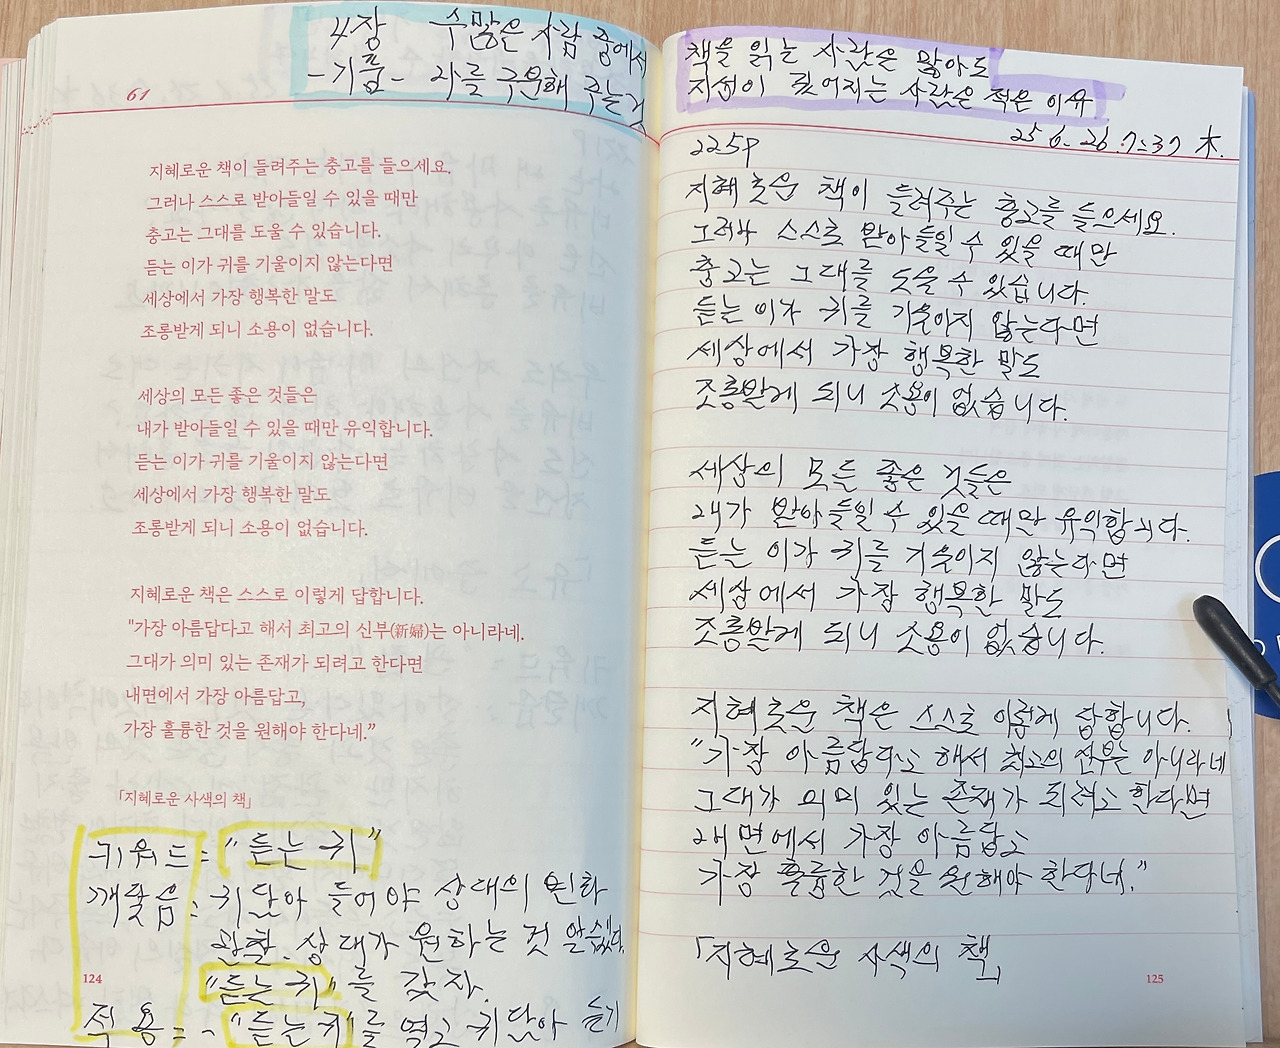 4장 수많은 사람 중에서
-기품- 나를 구분해 주는 것
61
지혜로운 책이 들려주는 충고를 들으세요.
그러나 스스로 받아들일 수 있을 때만
충고는 그대를 도울 수 있습니다.
듣는 이가 귀를 기울이지 않는다면
세상에서 가장 행복한 말도
조롱받게 되니 소용이 없습니다.
세상의 모든 좋은 것들은
내가 받아들일 수 있을 때만 유익합니다.
듣는 이가 귀를 기울이지 않는다면
세상에서 가장 행복한 말도
조롱받게 되니 소용이 없습니다.
지혜로운 책은 스스로 이렇게 답합니다.
"가장 아름답다고 해서 최고의 신부(新婦)는 아니라네.
그대가 의미 있는 존재가 되려고 한다면
내면에서 가장 아름답고,
가장 훌륭한 것을 원해야 한다네."
「지혜로운 사색의 책」
키워드 = "듣는 귀"
깨달음 : 귀담아 들어야 상대의 변화
관찰. 상대가 원하는 것 알 수 있다.
"듣는 귀"를 갖자.
124
적용 = - "듣는 귀"를 열고 귀담아 듣기
책을 읽는 사람은 많아도
지성이 깊어지는 사람은 적은 이유
25. 6. 26. 7:37 木.
225P
지혜로운 책이 들려주는 충고를 들으세요.
그러나 스스로 받아들일 수 있을 때만
충고는 그대를 도울 수 있습니다.
듣는 이가 귀를 기울이지 않는다면
세상에서 가장 행복한 말도
조롱받게 되니 소용이 없습니다.
세상의 모든 좋은 것들은
내가 받아들일 수 있을 때만 유익합니다.
듣는 이가 귀를 기울이지 않는다면
세상에서 가장 행복한 말도
조롱받게 되니 소용이 없습니다.
지혜로운 책은 스스로 이렇게 답합니다.
"가장 아름답다고 해서 최고의 신부는 아니라네
그대가 의미 있는 존재가 되려고 한다면
내면에서 가장 아름답고
가장 훌륭한 것을 원해야 한다네."
「지혜로운 사색의 책」
125